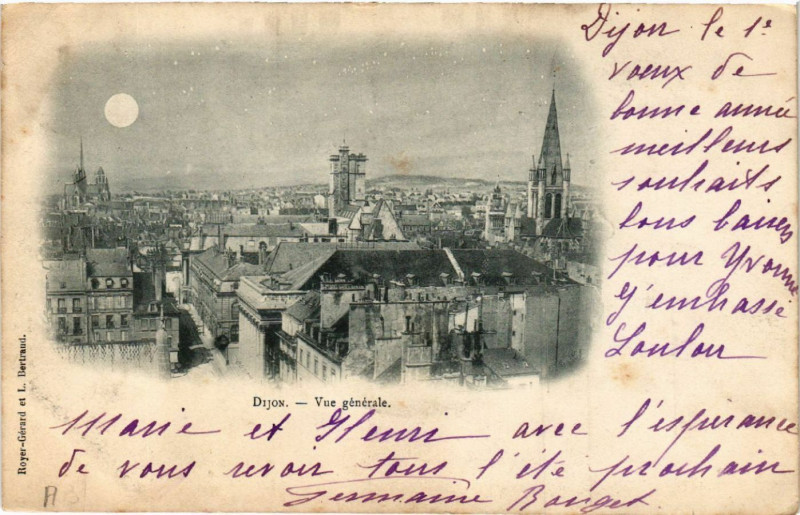 Dijon le 1e
vœux de
bonne année
meilleurs
souhaits
bons baisers
pour Yvonne
J'embrasse
Loulou
DIJON. — Vue générale.
Royer-Gérard et L. Bertraud.
Marie et Henri avec l'espérance
de vous revoir tous l'été prochain
Germaine